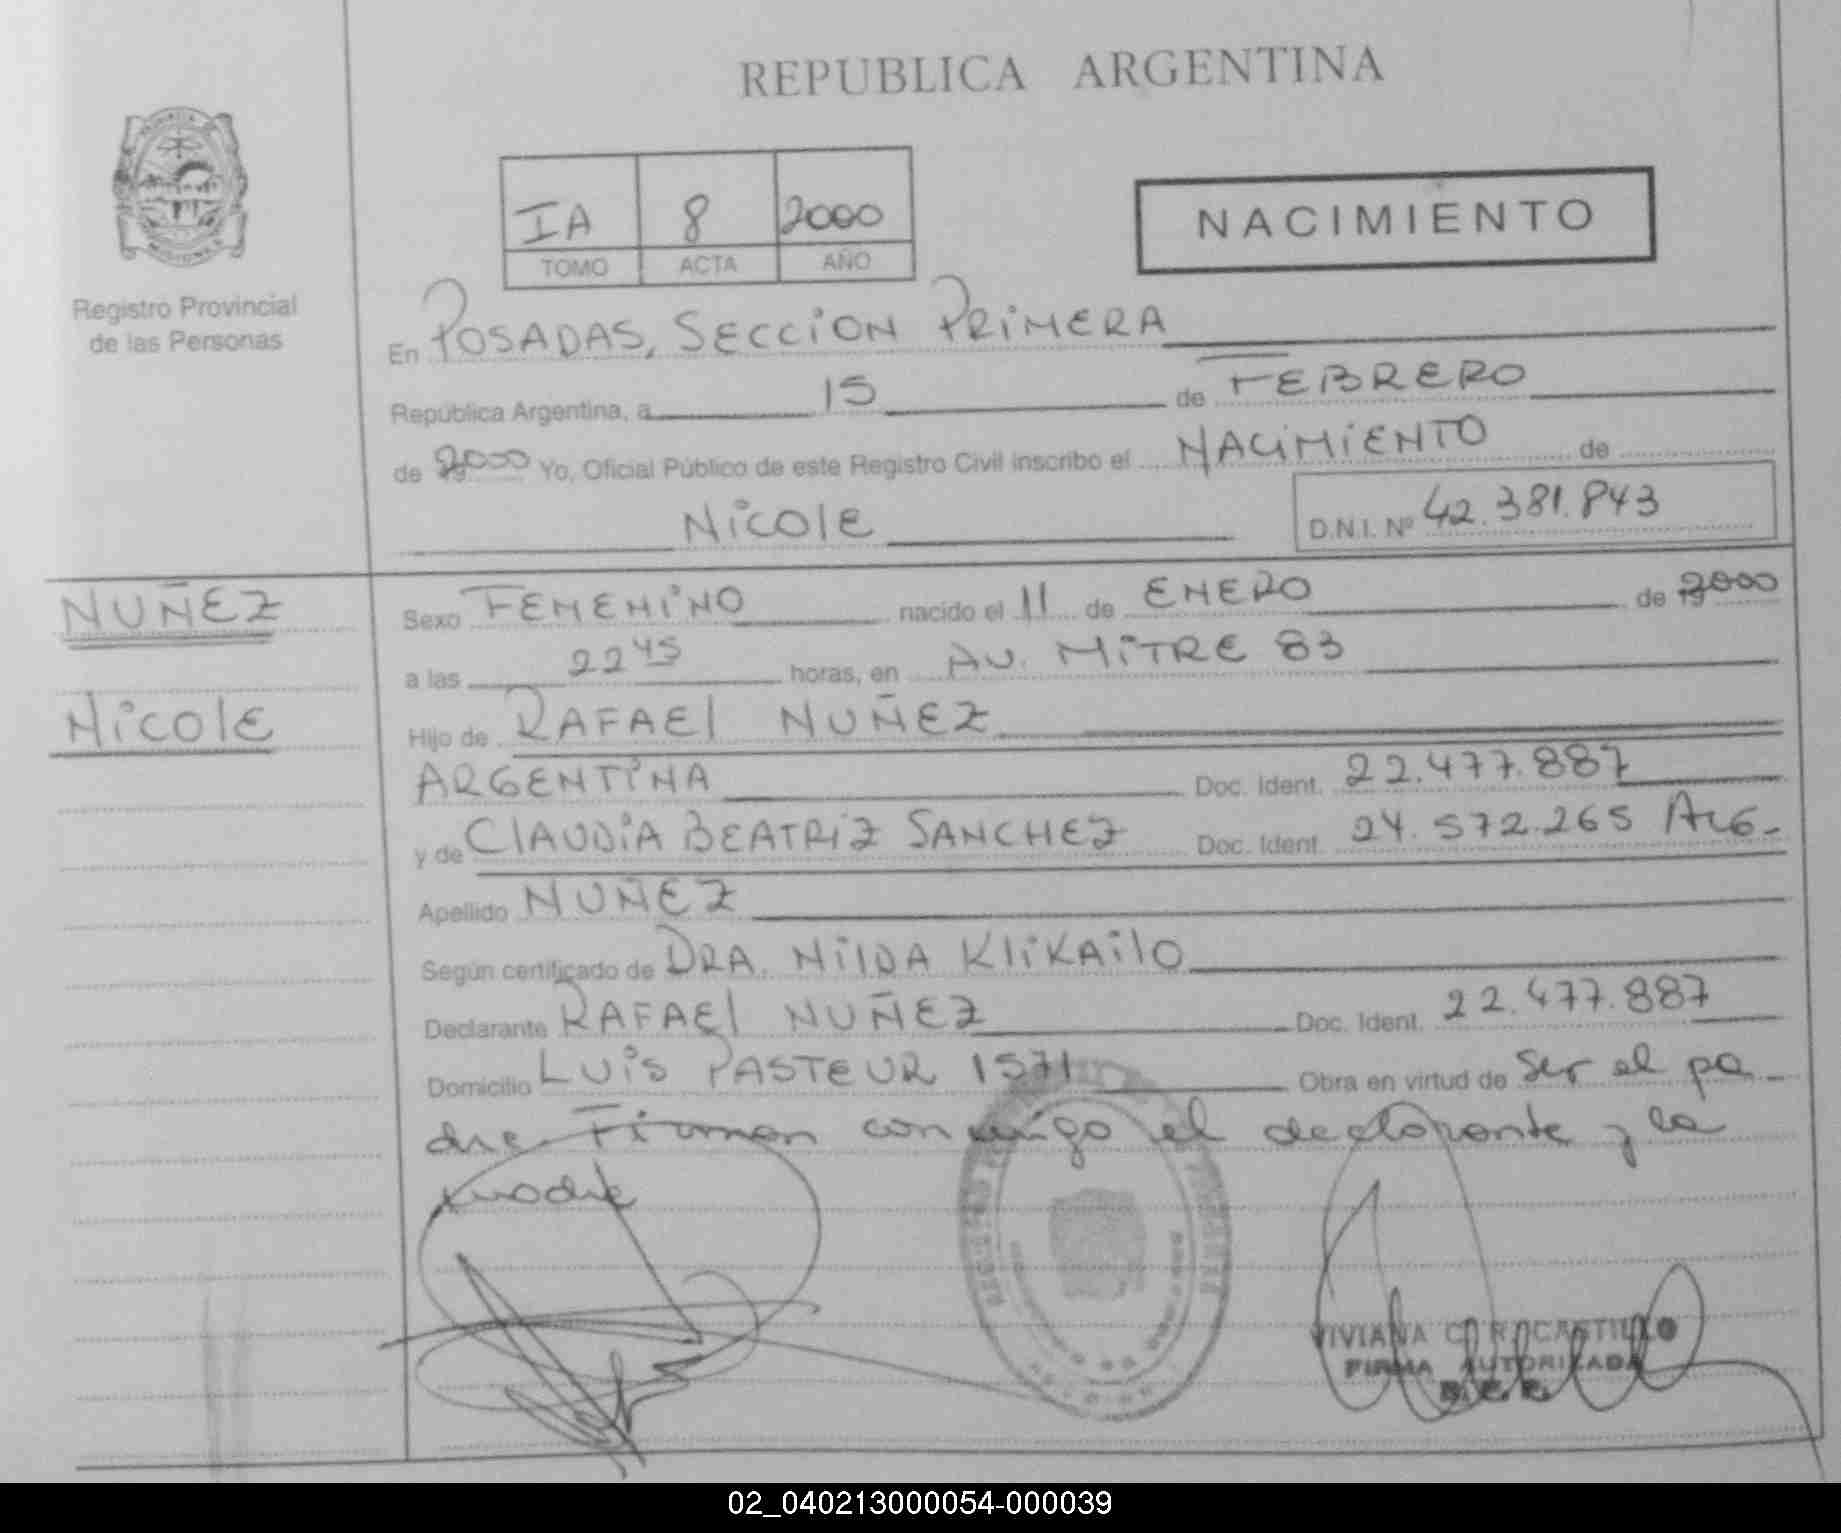 REPUBLICA ARGENTINA
IA 8 2000
TOMO ACTA AÑO
NACIMIENTO
Registro Provincial
de las Personas
En POSADAS, SECCION PRIMERA
República Argentina, a 15 de FEBRERO
de 2000 Yo, Oficial Público de este Registro Civil inscribo el NACIMIENTO de
Nicole D.N.I. Nº 42.381.843
NUÑEZ
Nicole
Sexo FEMENINO nacido el 11 de ENERO de 2000
a las 22 45 horas, en AV. MITRE 83
Hijo de RAFAEL NUÑEZ
ARGENTINA Doc. Ident. 22.477.887
y de CLAUDIA BEATRIZ SANCHEZ Doc. Ident. 24.572.265 ARG.
Apellido NUÑEZ
Según certificado de DRA. NILDA KLIKAILO
Declarante RAFAEL NUÑEZ Doc. Ident. 22.477.887
Domicilio LUIS PASTEUR 1571 Obra en virtud de ser el pa
dre. Firman conmigo el declarante y la
madre
VIVIANA CASTILLO
FIRMA AUTORIZADA
02_040213000054-000039